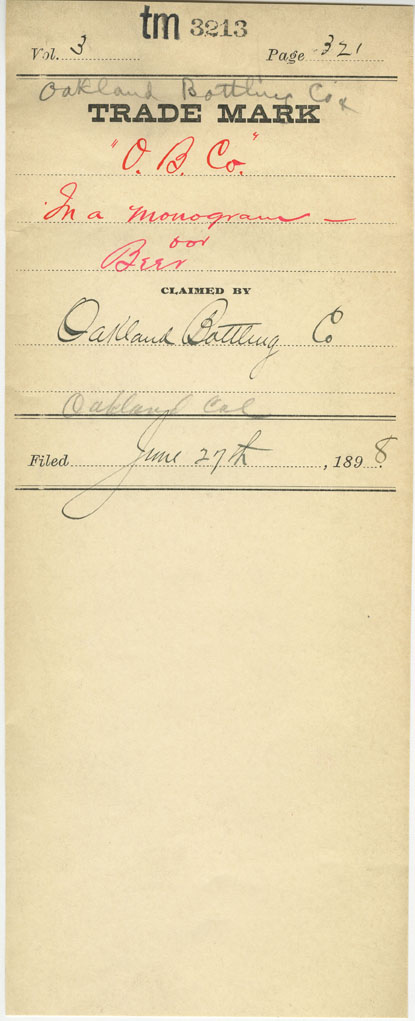 tm 3213
Vol. 3 Page 321
Oakland Bottling Co x
TRADE MARK
"O. B. Co."
In a monogram —
for
Beer
CLAIMED BY
Oakland Bottling Co
Oakland Cal
Filed June 27th, 1898